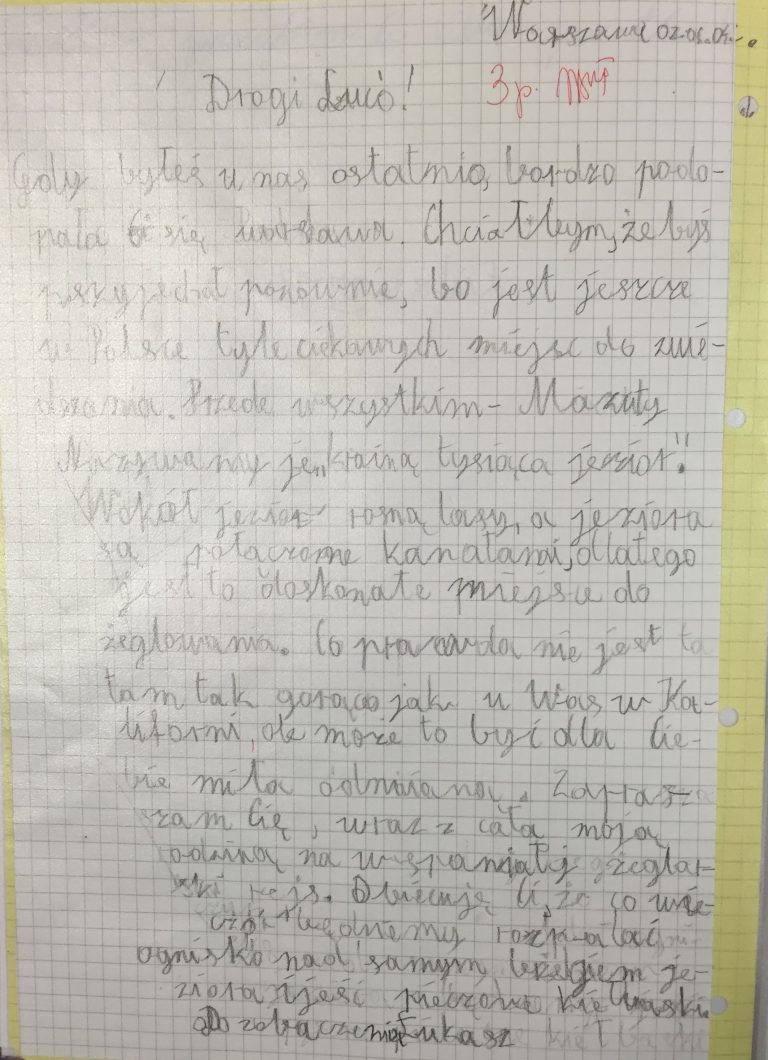 Warszawa 02.06.
Drogi Lució!
3p.
Gdy byłeś u nas ostatnio, bardzo podo-
bała Ci się Warszawa. Chciałbym, żebyś
przyjechał ponownie, bo jest jeszcze
w Polsce tyle ciekawych miejsc do zwie-
dzania. Przede wszystkim - Mazury
Nazywamy je „krainą tysiąca jezior".
Wokół jezior rosną lasy, a jeziora
są połączone kanałami, dlatego
jest to doskonałe miejsce do
żeglowania. Co prawda nie jest ta
tam tak gorąco jak u Was w Ka-
liforni, ale może to być dla Cie-
bie miła odmiana. Zaprasza
szam Cię, wraz z całą moją
rodziną na wspaniały żeglar-
ski rejs. Obiecuję Ci, że co wie-
czór będziemy rozpalać
ognisko nad samym brzegiem je-
ziora i jeść pieczone kiełbaski.
Do zobaczenia Łukasz